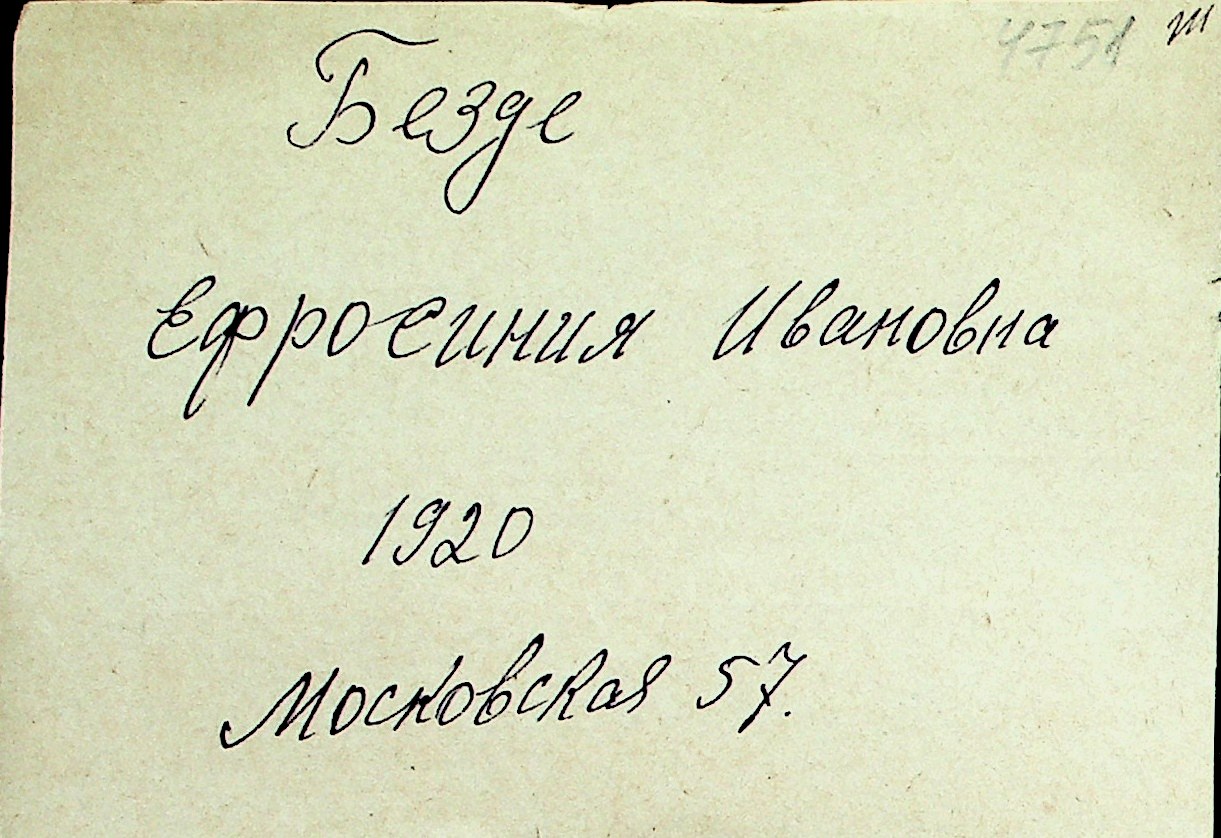 4751 ш
Безде
Ефросиния Ивановна
1920
Московская 57.